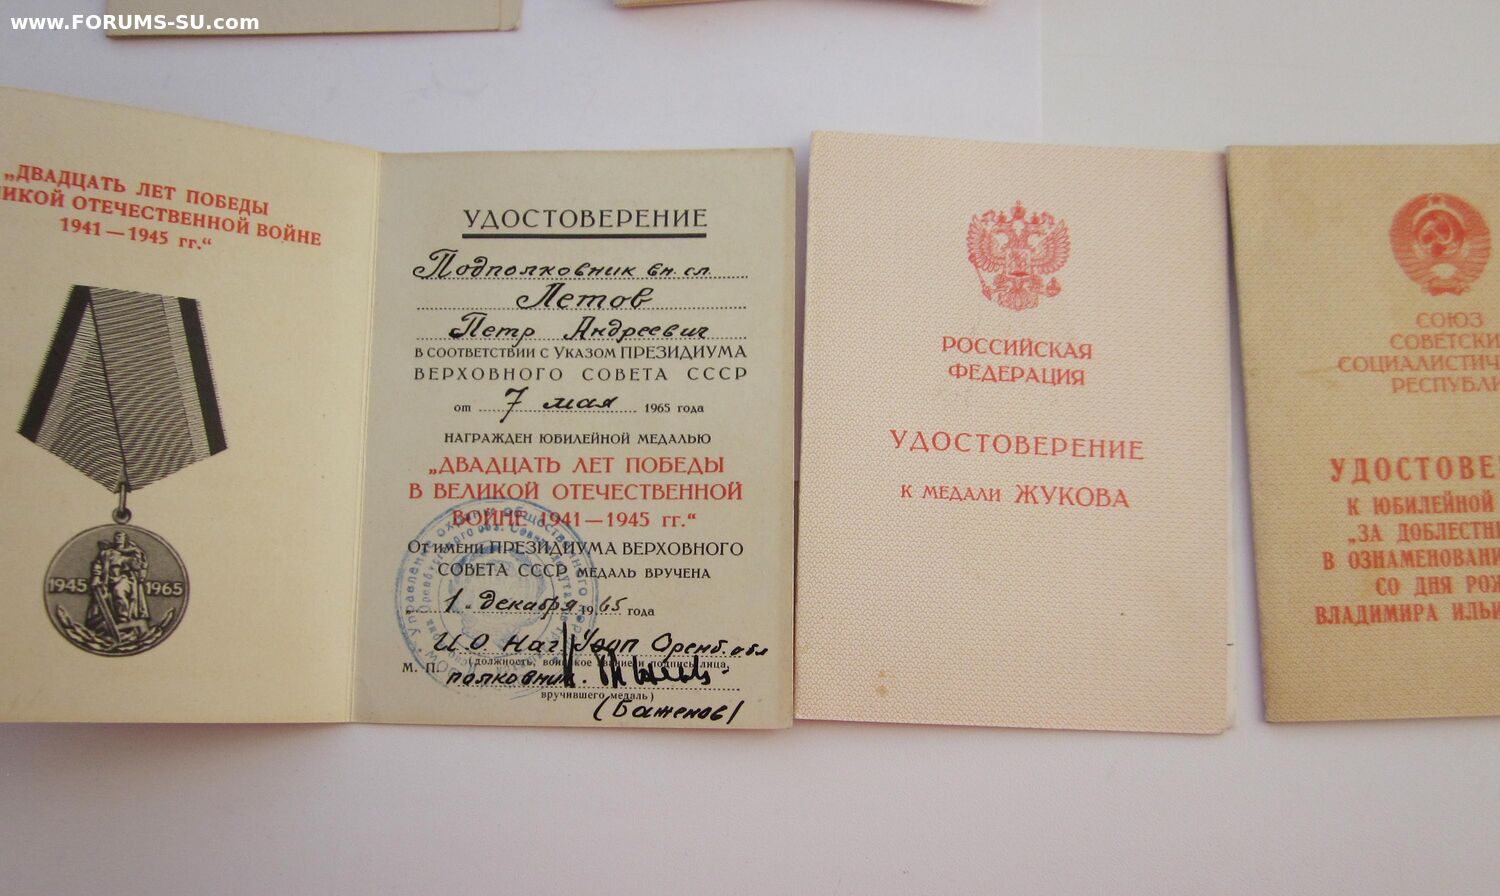 www.FORUMS-SU.com
„ДВАДЦАТЬ ЛЕТ ПОБЕДЫ
ИКОЙ ОТЕЧЕСТВЕННОЙ ВОЙНЕ
1941—1945 гг.“
1945 1965
УДОСТОВЕРЕНИЕ
Подполковник вн. сл.
Летов
Петр Андреевич
В СООТВЕТСТВИИ С УКАЗОМ ПРЕЗИДИУМА
ВЕРХОВНОГО СОВЕТА СССР
от 7 мая 1965 года
НАГРАЖДЕН ЮБИЛЕЙНОЙ МЕДАЛЬЮ
„ДВАДЦАТЬ ЛЕТ ПОБЕДЫ
В ВЕЛИКОЙ ОТЕЧЕСТВЕННОЙ
ВОЙНЕ 1941—1945 гг.“
ОТ ИМЕНИ ПРЕЗИДИУМА ВЕРХОВНОГО
СОВЕТА СССР МЕДАЛЬ ВРУЧЕНА
„1“ декабря 1965 года
И.О. Нач. Уооп Оренб. обл
М. П. (должность, воинское звание и подпись лица,
полковник
вручившего медаль)
(Баженов)
РОССИЙСКАЯ
ФЕДЕРАЦИЯ
УДОСТОВЕРЕНИЕ
К МЕДАЛИ ЖУКОВА
СОЮЗ
СОВЕТСКИ
СОЦИАЛИСТИЧЕ
РЕСПУБЛИ
УДОСТОВЕ
К ЮБИЛЕЙНОЙ
„ЗА ДОБЛЕСТН
В ОЗНАМЕНОВАНИ
СО ДНЯ РОЖ
ВЛАДИМИРА ИЛЬИ